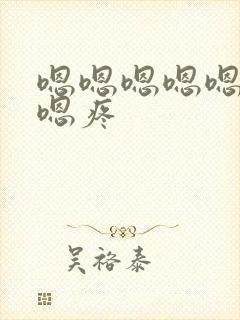 嗯嗯嗯嗯嗯
嗯疼
吴袼泰